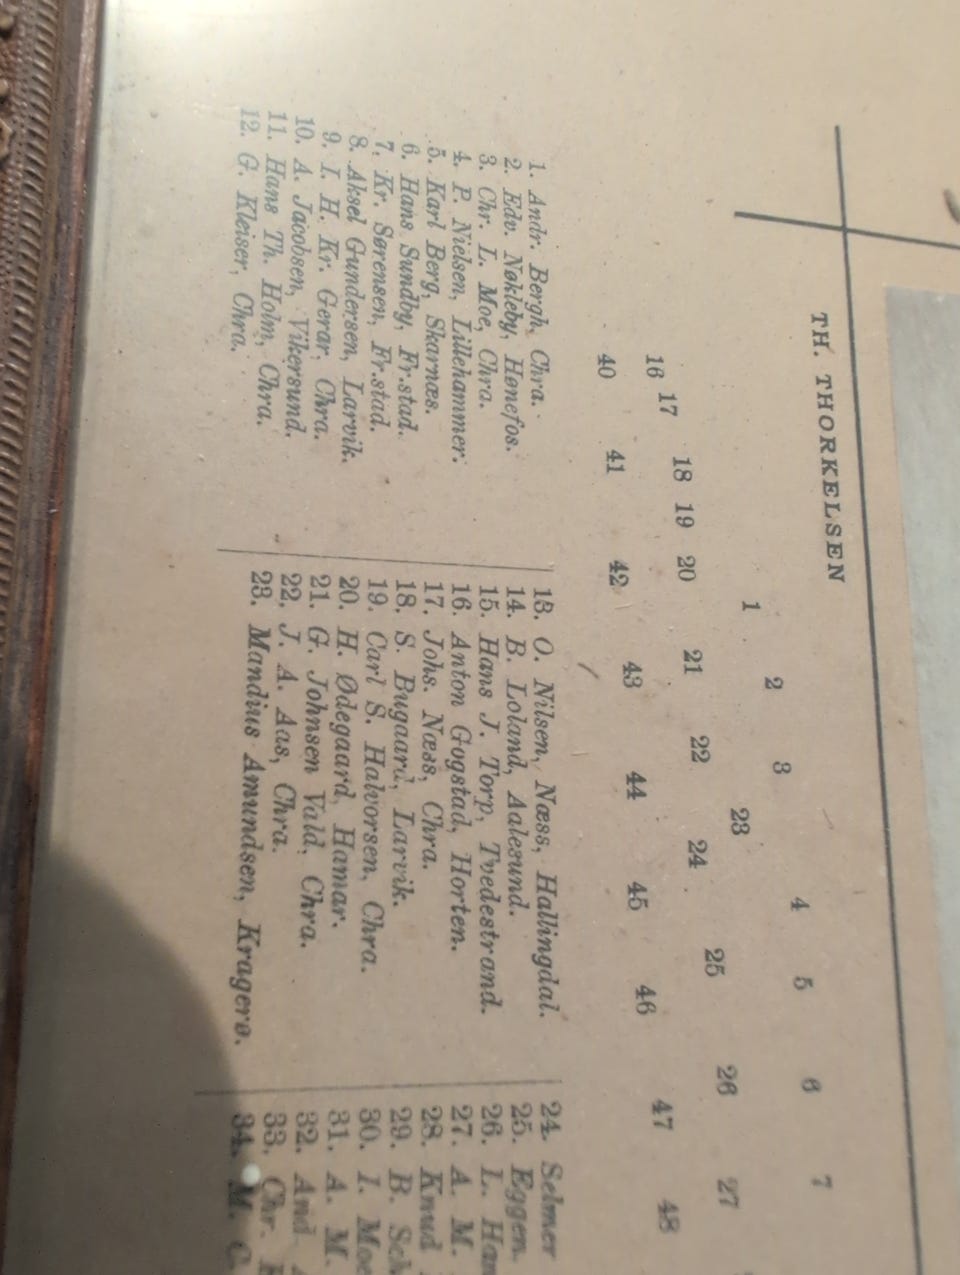 TH. THORKELSEN
1 2 3 4 5 6 7
16 17 18 19 20 21 22 23 24 25 26 27
40 41 42 43 44 45 46 47 48
1. Andr. Bergh, Chra.
2. Edv. Nøkleby, Hønefos.
3. Chr. L. Moe, Chra.
4. P. Nielsen, Lillehammer.
5. Karl Berg, Skarnæs.
6. Hans Sundby, Fr.stad.
7. Kr. Sørensen, Fr.stad.
8. Aksel Gundersen, Larvik.
9. I. H. Kr. Gerar, Chra.
10. A. Jacobsen, Vikersund.
11. Hans Th. Holm, Chra.
12. G. Kleiser, Chra.
13. O. Nilsen, Næss, Hallingdal.
14. B. Loland, Aalesund.
15. Hans J. Torp, Tvedestrand.
16. Anton Gogstad, Horten.
17. Johs. Næss, Chra.
18. S. Bugaard, Larvik.
19. Carl S. Halvorsen, Chra.
20. H. Ødegaard, Hamar.
21. G. Johnsen Vald, Chra.
22. J. A. Aas, Chra.
23. Mandius Amundsen, Kragerø.
24. Selmer
25. Eggen.
26. L. Han
27. A. M.
28. Knud
29. B. Sch
30. I. Moe
31. A. M.
32. And.
33. Chr.
34. M. C.